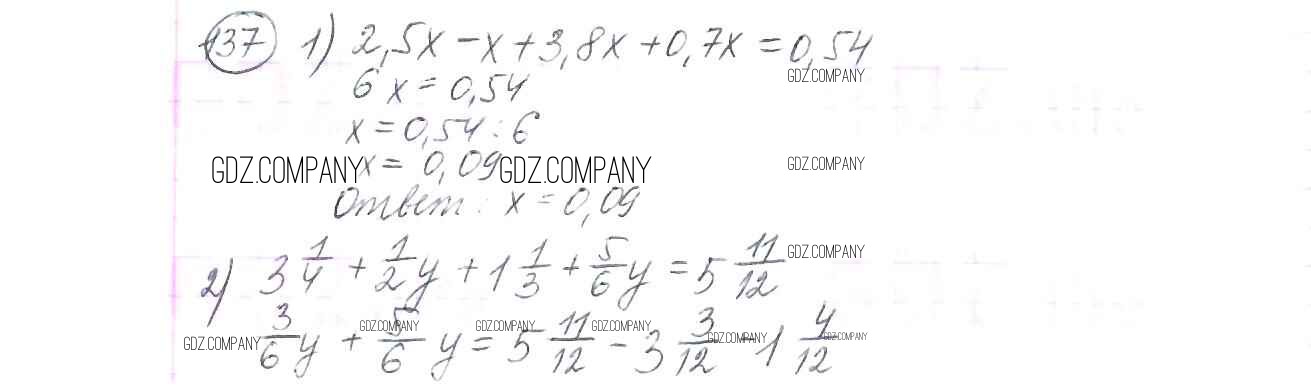 137 1) 2,5x - x + 3,8x + 0,7x = 0,54
GDZ.COMPANY
6x = 0,54
x = 0,54 : 6
GDZ.COMPANY x = 0,09 GDZ.COMPANY GDZ.COMPANY
Ответ: x = 0,09
2) 3 1/4 + 1/2 y + 1 1/3 + 5/6 y = 5 11/12 GDZ.COMPANY
GDZ.COMPANY GDZ.COMPANY GDZ.COMPANY GDZ.COMPANY GDZ.COMPANY GDZ.COMPANY
3/6 y + 5/6 y = 5 11/12 - 3 3/12 - 1 4/12